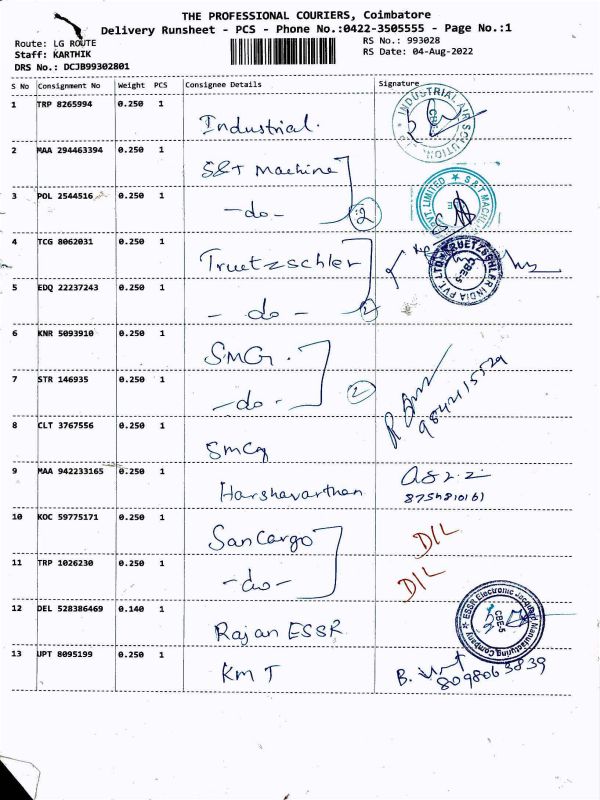 THE PROFESSIONAL COURIERS, Coimbatore
Delivery Runsheet - PCS - Phone No.:0422-3505555 - Page No.:1
Route: LG ROUTE
RS No.: 993028
Staff: KARTHIK
RS Date: 04-Aug-2022
DRS No.: DCJB99302801
S No Consignment No Weight PCS Consignee Details Signature
1 TRP 8265994 0.250 1 Industrial.
INDUSTRIAL AIR SOLUTION
CBE
2 MAA 294463394 0.250 1 S&T Machine
3 POL 2544516 0.250 1 -do- 2
PVT. LIMITED ★ S&T MACHINE
4 TCG 8062031 0.250 1 Truetzschler
TRUETZSCHLER INDIA PVT. LTD.
CBE-5
5 EDQ 22237243 0.250 1 - do - 2
6 KNR 5093910 0.250 1 SMG.
7 STR 146935 0.250 1 -do- 2
8 CLT 3767556 0.250 1 SMCG
9 MAA 942233165 0.250 1 Harshavarthan
8754810161
10 KOC 59775171 0.250 1 San Cargo D/L
11 TRP 1026230 0.250 1 -do- D/L
12 DEL 528386469 0.140 1 Rajan ESSR
★ ESSR Electronic Jacquard Manufacturing Company
CBE-5
13 UPT 8095199 0.250 1 KMT
8098063839